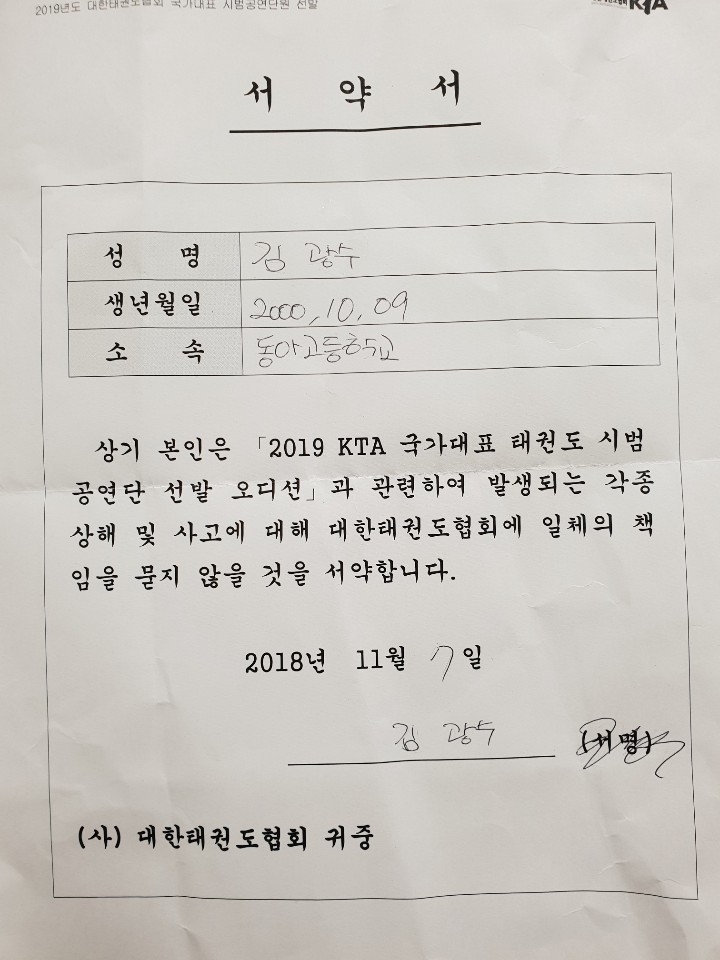 2019년도 대한태권도협회 국가대표 시범공연단원 선발
KTA
서 약 서
성 명 김 광수
생년월일 2000.10.09
소 속 동아고등학교
상기 본인은 「2019 KTA 국가대표 태권도 시범
공연단 선발 오디션」과 관련하여 발생되는 각종
상해 및 사고에 대해 대한태권도협회에 일체의 책
임을 묻지 않을 것을 서약합니다.
2018년 11월 7일
김 광수 (서명)
(사) 대한태권도협회 귀중